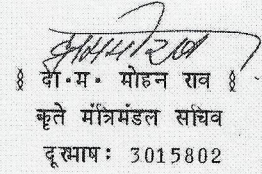 ﴾ दा॰म॰ मोहन राव ﴿
कृते मंत्रिमंडल सचिव
दूरभाष: 3015802